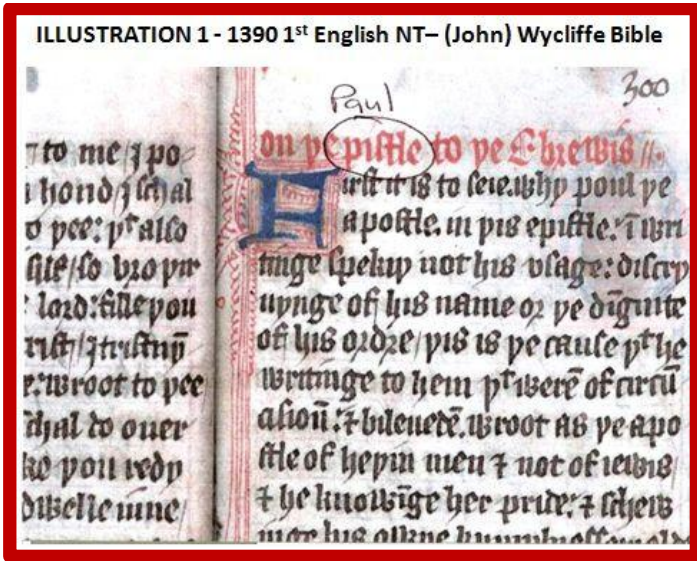 ILLUSTRATION 1 - 1390 1st English NT– (John) Wycliffe Bible
Paul
300
to me / I po
hond I schal
o þee: þt also
silf / so broþir
lord: fille þou
e: wroot to þee
schal do ouer
þou redy
dwelle inne
on þe pistle to þe Ebrewis //.
First it is to seie. why poul þe
apostle. in þis epistle: ī wri
tinge spekiþ not his vsage: discry
uynge of his name or þe dīgnite
of his ordre / þis is þe cause þt he
writinge to hem þt werē of circū
asioū: ⁊ bileuedē. wroot as þe apo
stle of heþin men ⁊ not of iewis /
⁊ he knowīge her pride: ⁊ schew
inge his owne